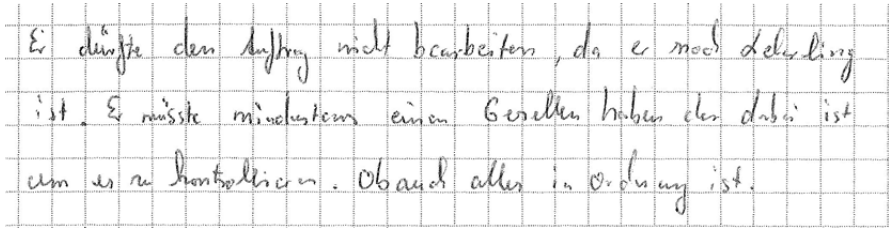 Er dürfte den Auftrag nicht bearbeiten, da er noch Lehrling
ist. Er müsste mindestens einen Gesellen haben der dabei ist
um es zu kontrollieren. Ob auch alles in Ordnung ist.